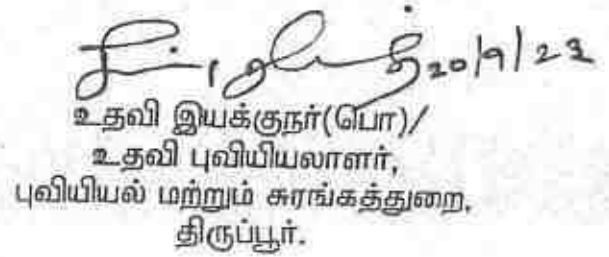 20/9/23
உதவி இயக்குநர்(பொ)/
உதவி புவியியலாளர்,
புவியியல் மற்றும் சுரங்கத்துறை,
திருப்பூர்.